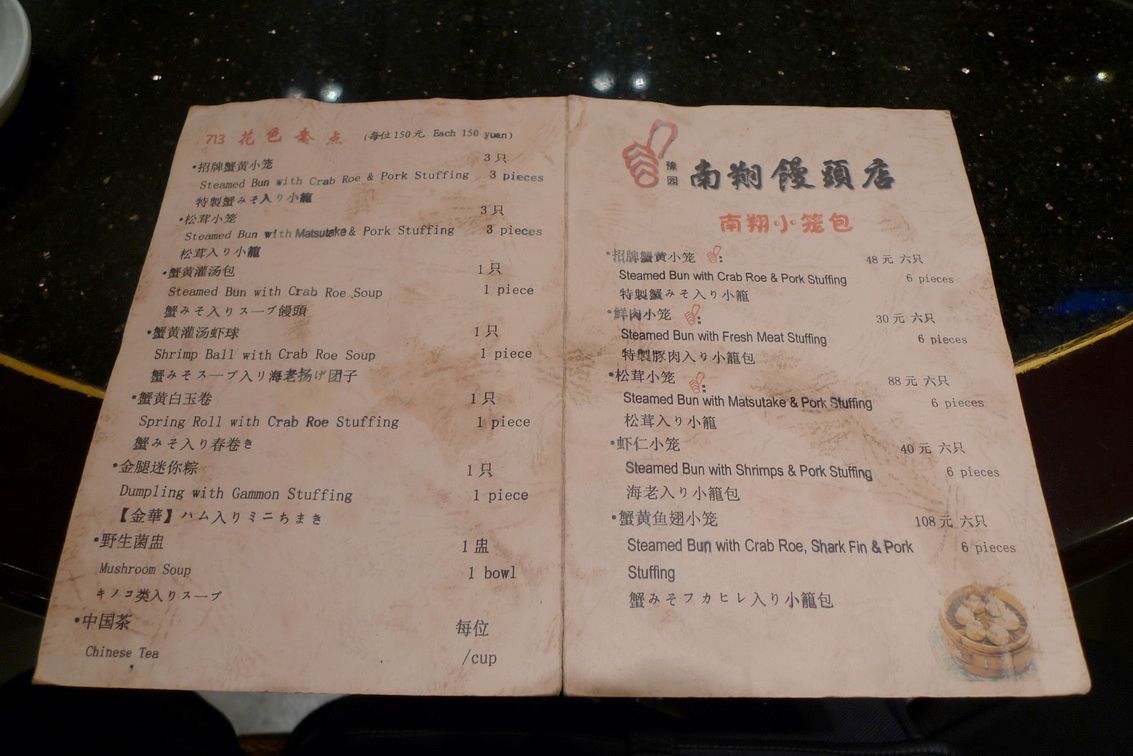 713 花色套点 (每位150元 Each 150 yuan)
•招牌蟹黄小笼 3只
Steamed Bun with Crab Roe & Pork Stuffing 3 pieces
特製蟹みそ入り小籠
•松茸小笼 3只
Steamed Bun with Matsutake & Pork Stuffing 3 pieces
松茸入り小籠
•蟹黄灌汤包 1只
Steamed Bun with Crab Roe Soup 1 piece
蟹みそ入りスープ饅頭
•蟹黄灌汤虾球 1只
Shrimp Ball with Crab Roe Soup 1 piece
蟹みそスープ入り海老揚げ团子
•蟹黄白玉卷 1只
Spring Roll with Crab Roe Stuffing 1 piece
蟹みそ入り春卷き
•金腿迷你粽 1只
Dumpling with Gammon Stuffing 1 piece
【金華】ハム入りミニちまき
•野生菌盅 1盅
Mushroom Soup 1 bowl
キノコ类入りスープ
•中国茶 每位
Chinese Tea /cup
豫园 南翔饅頭店
南翔小笼包
•招牌蟹黄小笼 48元 六只
Steamed Bun with Crab Roe & Pork Stuffing 6 pieces
特製蟹みそ入り小籠
•鲜肉小笼 30元 六只
Steamed Bun with Fresh Meat Stuffing 6 pieces
特製豚肉入り小籠包
•松茸小笼 88元 六只
Steamed Bun with Matsutake & Pork Stuffing 6 pieces
松茸入り小籠
•虾仁小笼 40元 六只
Steamed Bun with Shrimps & Pork Stuffing 6 pieces
海老入り小籠包
•蟹黄鱼翅小笼 108元 六只
Steamed Bun with Crab Roe, Shark Fin & Pork 6 pieces
Stuffing
蟹みそフカヒレ入り小籠包